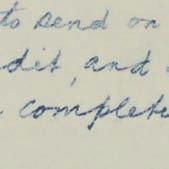 to send on
dit, and
complete